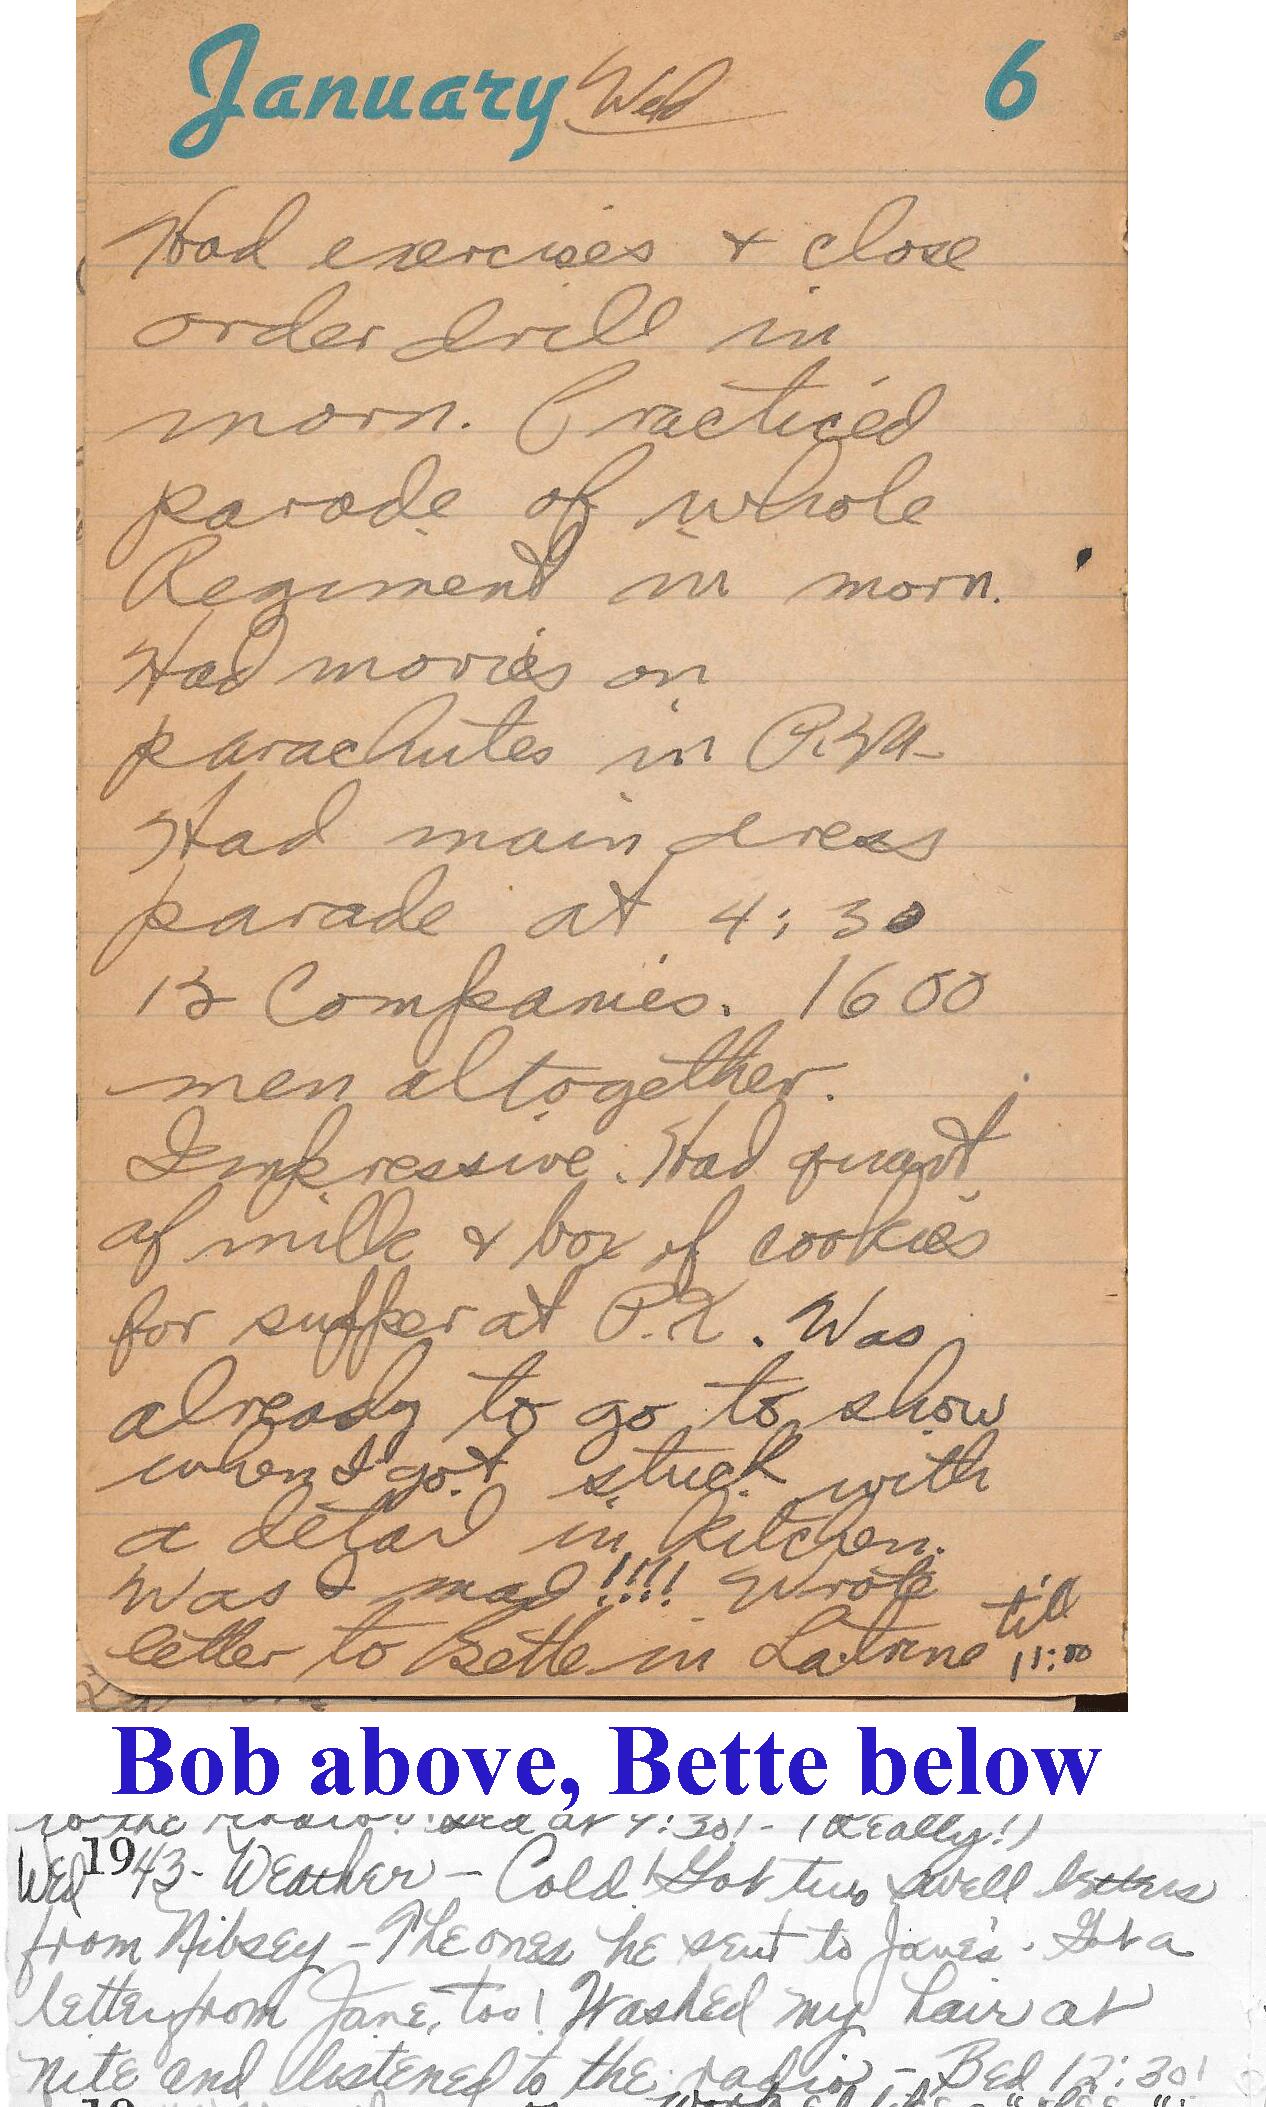 January Wed 6
Had exercises & close
order drill in
morn. Practiced
parade of whole
Regiment in morn.
Had movies on
parachutes in P.M.
Had main dress
parade at 4:30
Companies. 1600
men altogether.
Impressive. Had quart
of milk & box of cookies
for supper at P.X. Was
already to go to show
when I got stuck with
a detail in kitchen.
Was I mad!!!! Wrote
letter to Bette in Latrine till 11:00
Bob above, Bette below
to the radio! Bed at 9:30! - (Really!)
Wed 1943 - Weather - Cold! Got two swell letters
from Nibsey - The ones he sent to Jane's. Got a
letter from Jane, too! Washed my hair at
nite and listened to the radio - Bed 12:30!
19